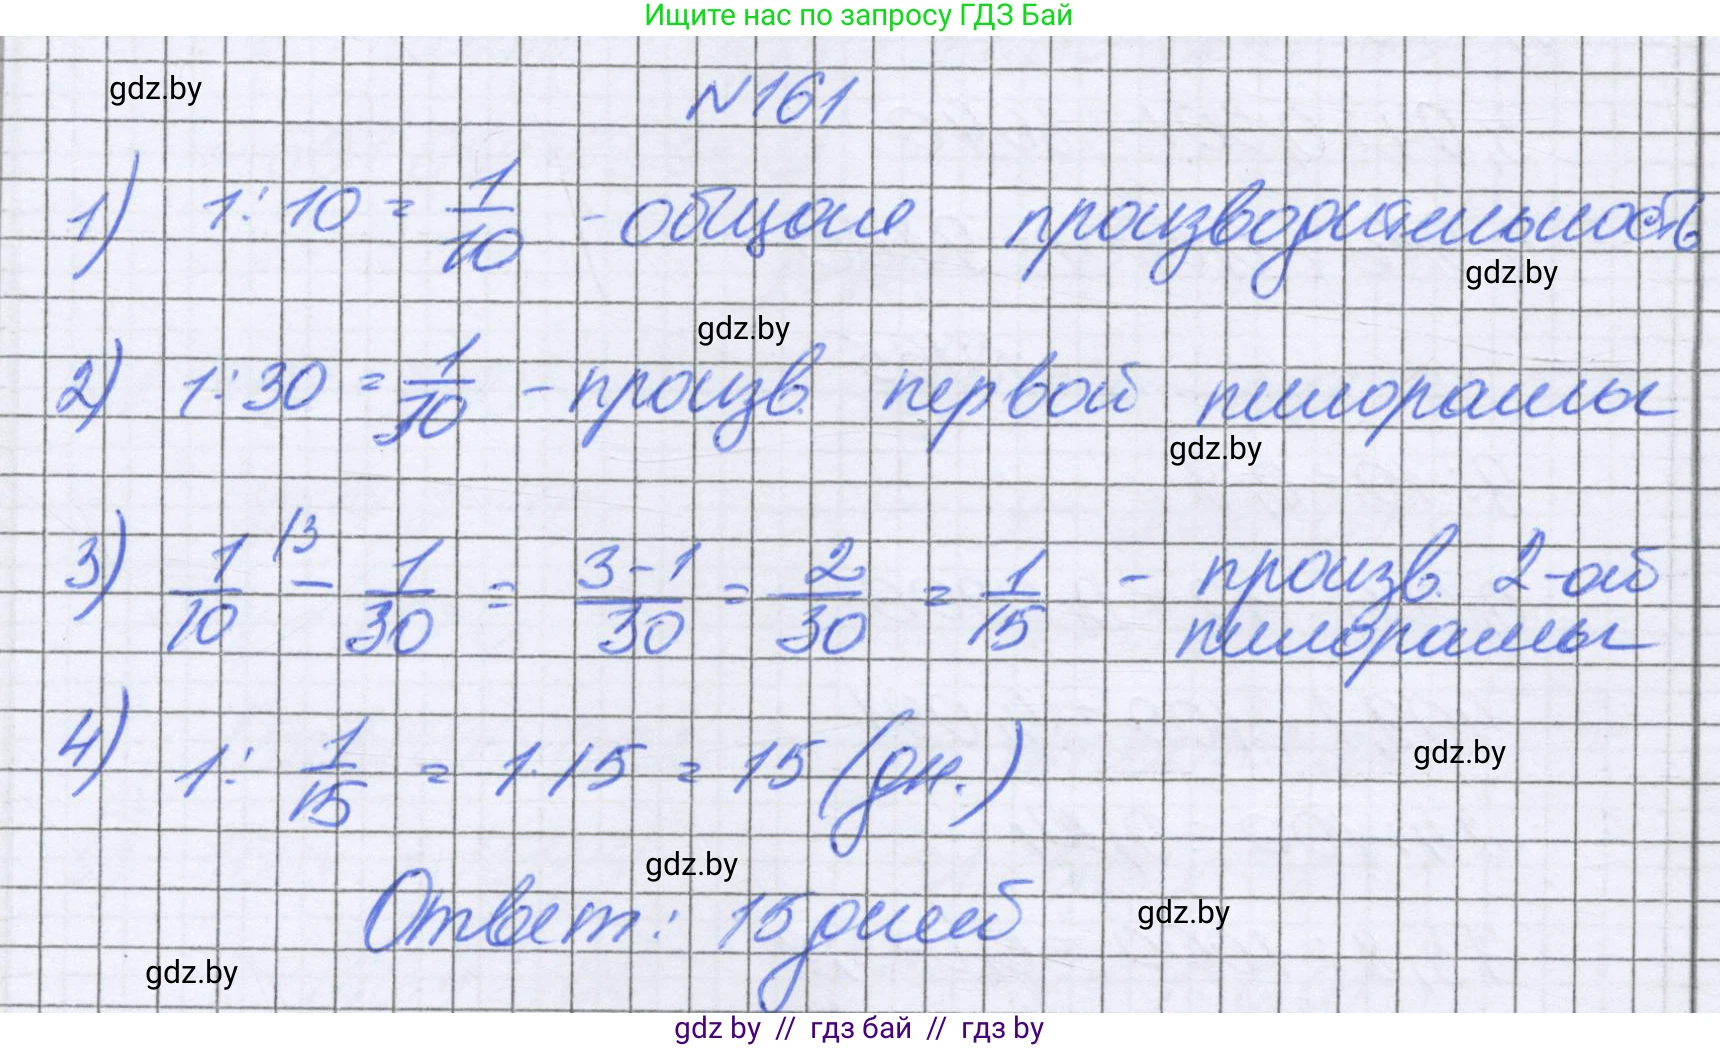 Ищите нас по запросу ГДЗ Бай
gdz.by
№161
1) 1:10 = 1/10 - общая производительность
gdz.by
gdz.by
2) 1:30 = 1/30 - произв. первой пилорамы
gdz.by
3) 1/10 /3 - 1/30 = 3-1/30 = 2/30 = 1/15 - произв. 2-ой
пилорамы
gdz.by
4) 1: 1/15 = 1·15 = 15 (дн.)
gdz.by
Ответ: 15 дней
gdz.by
gdz.by
gdz by // гдз бай // гдз by